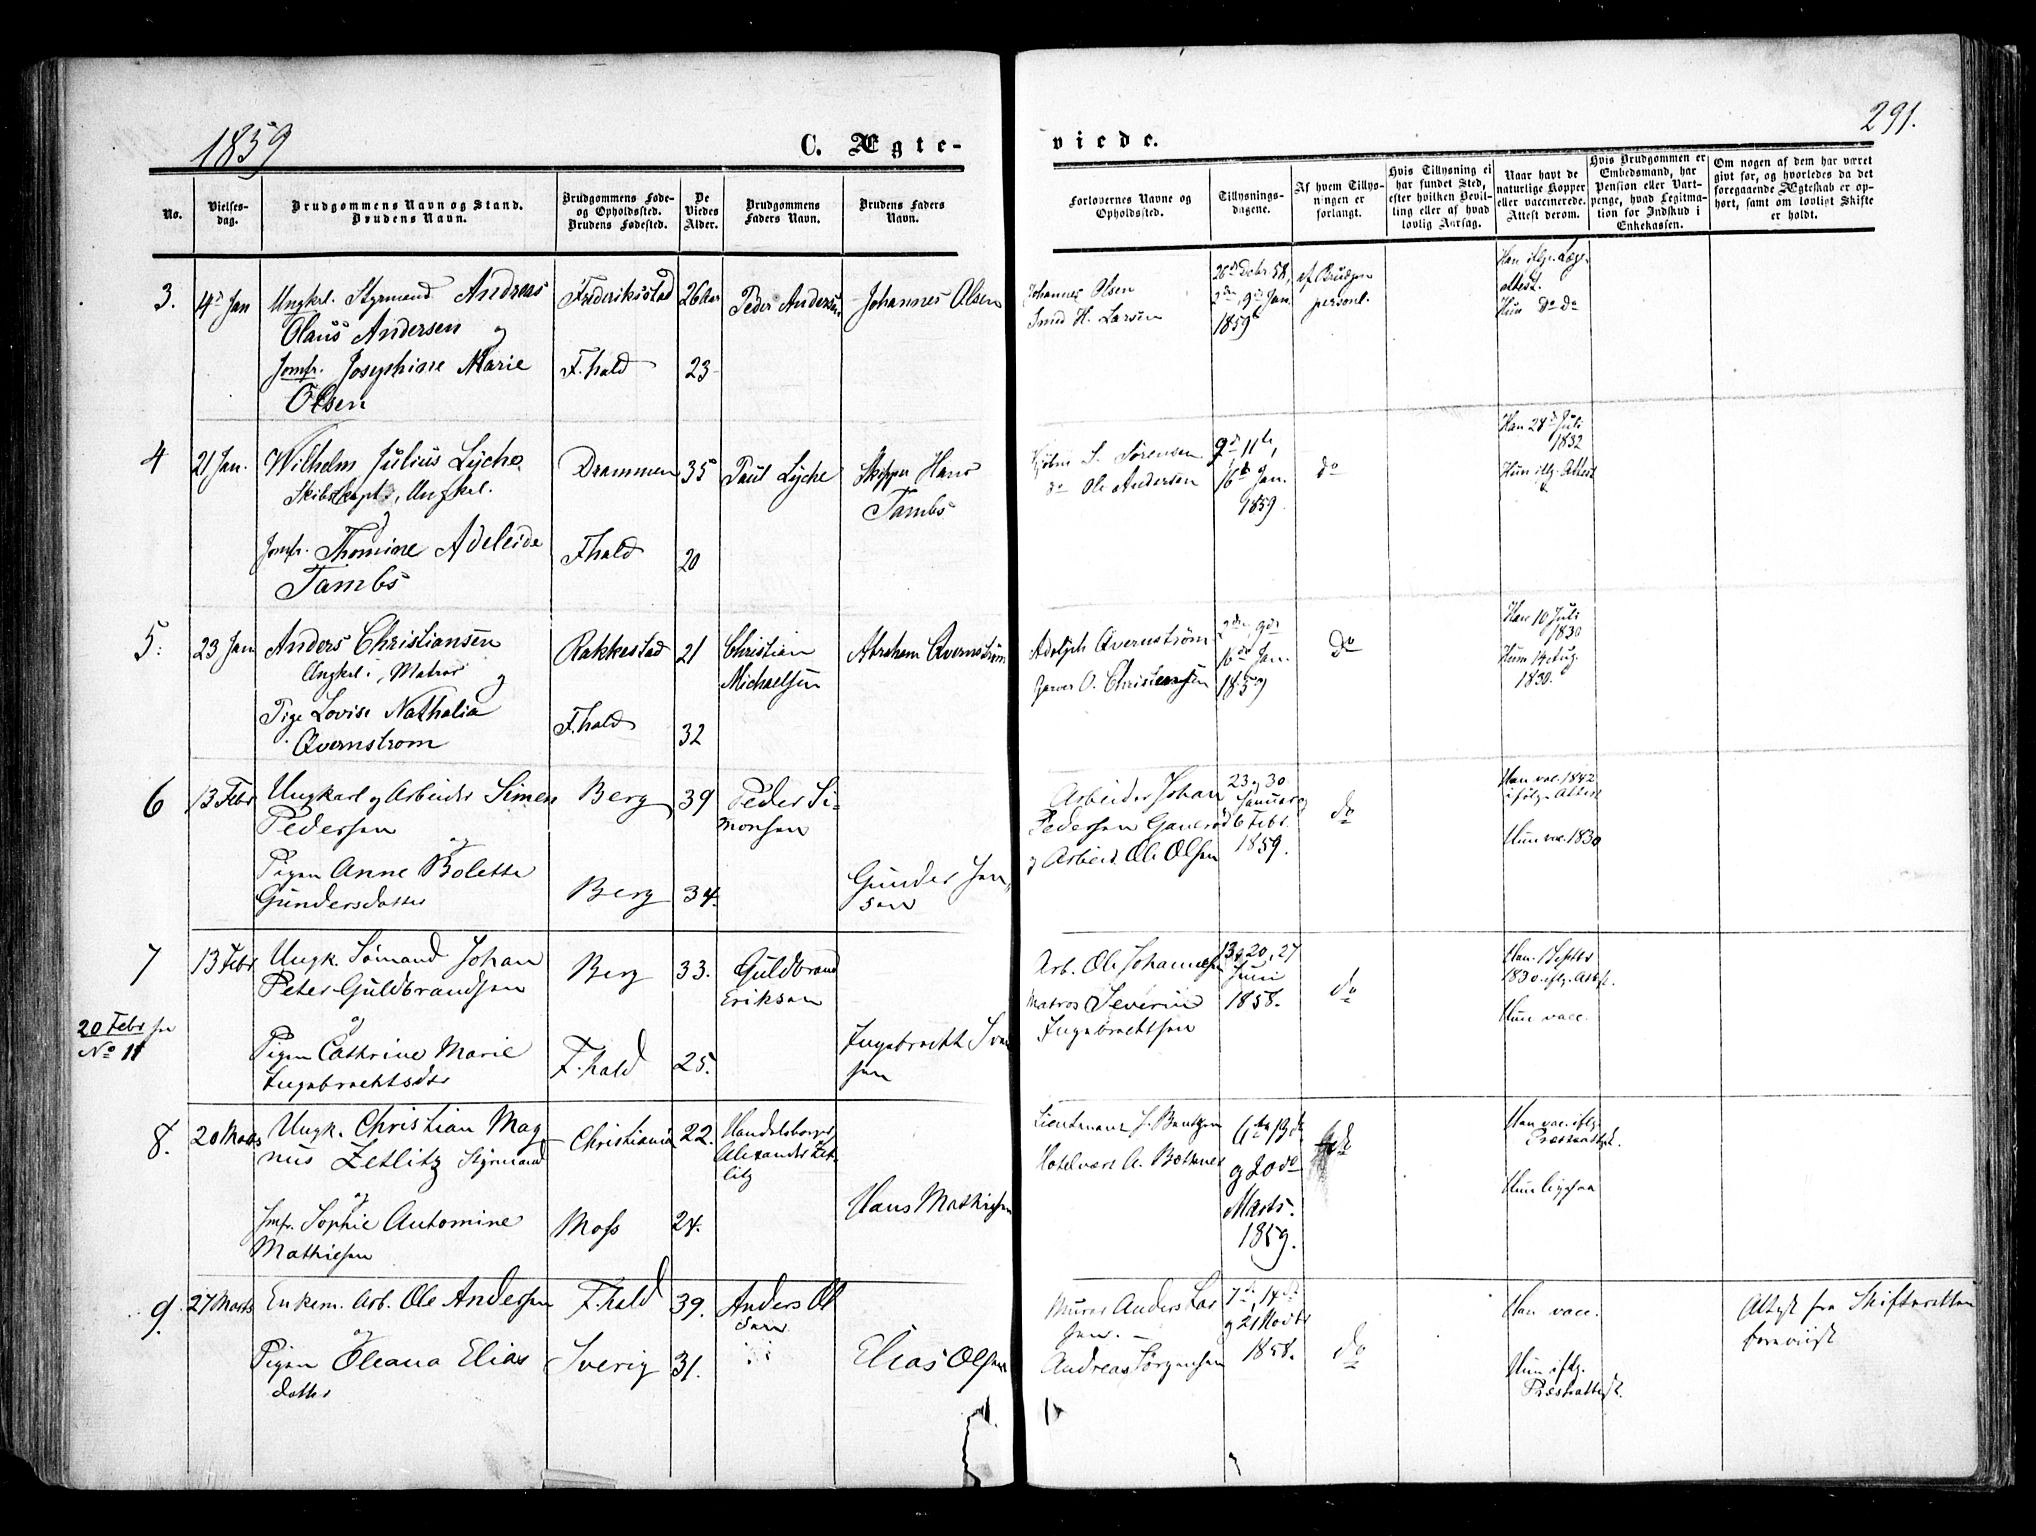 1859
C. Ægte-
viede.
291.
No.
Vielses-
dag.
Brudgommens Navn og Stand.
Brudens Navn.
Brudgommens Føde-
og Opholdssted.
Brudens Fødested.
De
Viedes
Alder.
Brudgommens
Faders Navn.
Brudens Faders
Navn.
Forlovernes Navne og
Opholdssted.
Tillysnings-
dagene.
Af hvem Tillys-
ningen er
forlangt.
Hvis Tillysning ei
har fundet Sted,
efter hvilken Bevil-
ling eller af hvad
lovlig Aarsag.
Naar havt de
naturlige Kopper
eller vaccinerede.
Attest derom.
Hvis Brudgommen er
Embedsmand, har
Pension eller Vart-
penge, hvad Legitma-
tion for Indskud i
Enkekassen.
Om nogen af dem har været
gift før, og hvorledes da det
foregaaende Ægteskab er op-
hørt, samt om lovligt Skifte
er holdt.
3. 4de Jan Ungkrl. Styrmand Andreas Frederiksstad 26 Aar Peder Andersen Johannes Olsen
Olaus Andersen
og
Jomfr. Josephine Marie F.hald 23
Olsen
Johannes Olsen
Smed H. Larsen
1859
personl.
Hun do do
4 21 Jan. Wilhelm Julius Lyche Drammen 35 Paul Lyche Skipper Hans
Skibskapt., Ungkrl. Tambs
Jomfr. Thomine Adeleide Fhald 20
Tambs
S. Sørensen 9de, 11te,
do Ole Andersen 16de Jan. do
1859.
1832
Hun iflg. Attest
5. 23 Jan Anders Christiansen Rakkestad 21 Christian Abraham Qvernstrøm
Ungkrl., Matros Michaelsen
og
Pige Lovise Nathalia F.hald 32
Qvernstrom
Adolph Qvernstrøm 2den, 9de
O. Christensen 16de Jan. do
1859
Han 10 Juli
1830
Hun 14 Aug.
1830.
6 13 Febr Ungkarl og Arbeider Simen Berg 39 Peder Si-
Pedersen monsen
og
Pigen Anne Bolette Berg 34. Gunder Jan-
Gundersdatter sen
Arbeider Johan 23 og 30
Pedersen Januar og
6 Febr. do
og Arbeid. Ole Olsen 1859.
Han vac. 1842
ifølg. Attest
Hun vac. 1830
7 13 Febr Ungk. Sømand Johan Berg 33. Guldbrand
Peter Guldbrandsen Eriksen
og
20 Febr se
No 11
Pigen Cathrine Marie F.hald 25. Ingebrecht
Ingebrechtsdtr sen
Arb. Ole Johannesen 13, 20, 27
Matros Severin Juni do
Ingebrechtsen 1858.
Hun vacc.
8. 20 Marts Ungk. Christian Mag Christiania 22. Handelsborger
nus Zetlitz Styrmand Alexander Zet-
litz
og
Jmfr. Sophie Antomine Moss 24. Hans Mathiesen
Mathiesen
Lieutenant J. Bentzen 6te, 13de
Hotelvært A. Bøttner og 20de
Marts.
1859.
do
Han vac. iflg.
Præsteattest.
Hun ligesaa
9. 27 Marts Enkem. Arb. Ole Andersen F.hald 39. Anders Ol
og sen
Pigen Oleana Elias Sverig 31. Elias Olsen
datter
Murer Anders Lar 7de, 14de
sen. og 21 Novbr do
Andreas Jørgensen 1858.
Han vacc.
Hun iflg.
Præsteattest.
Attest fra Skifteretten
foreviist